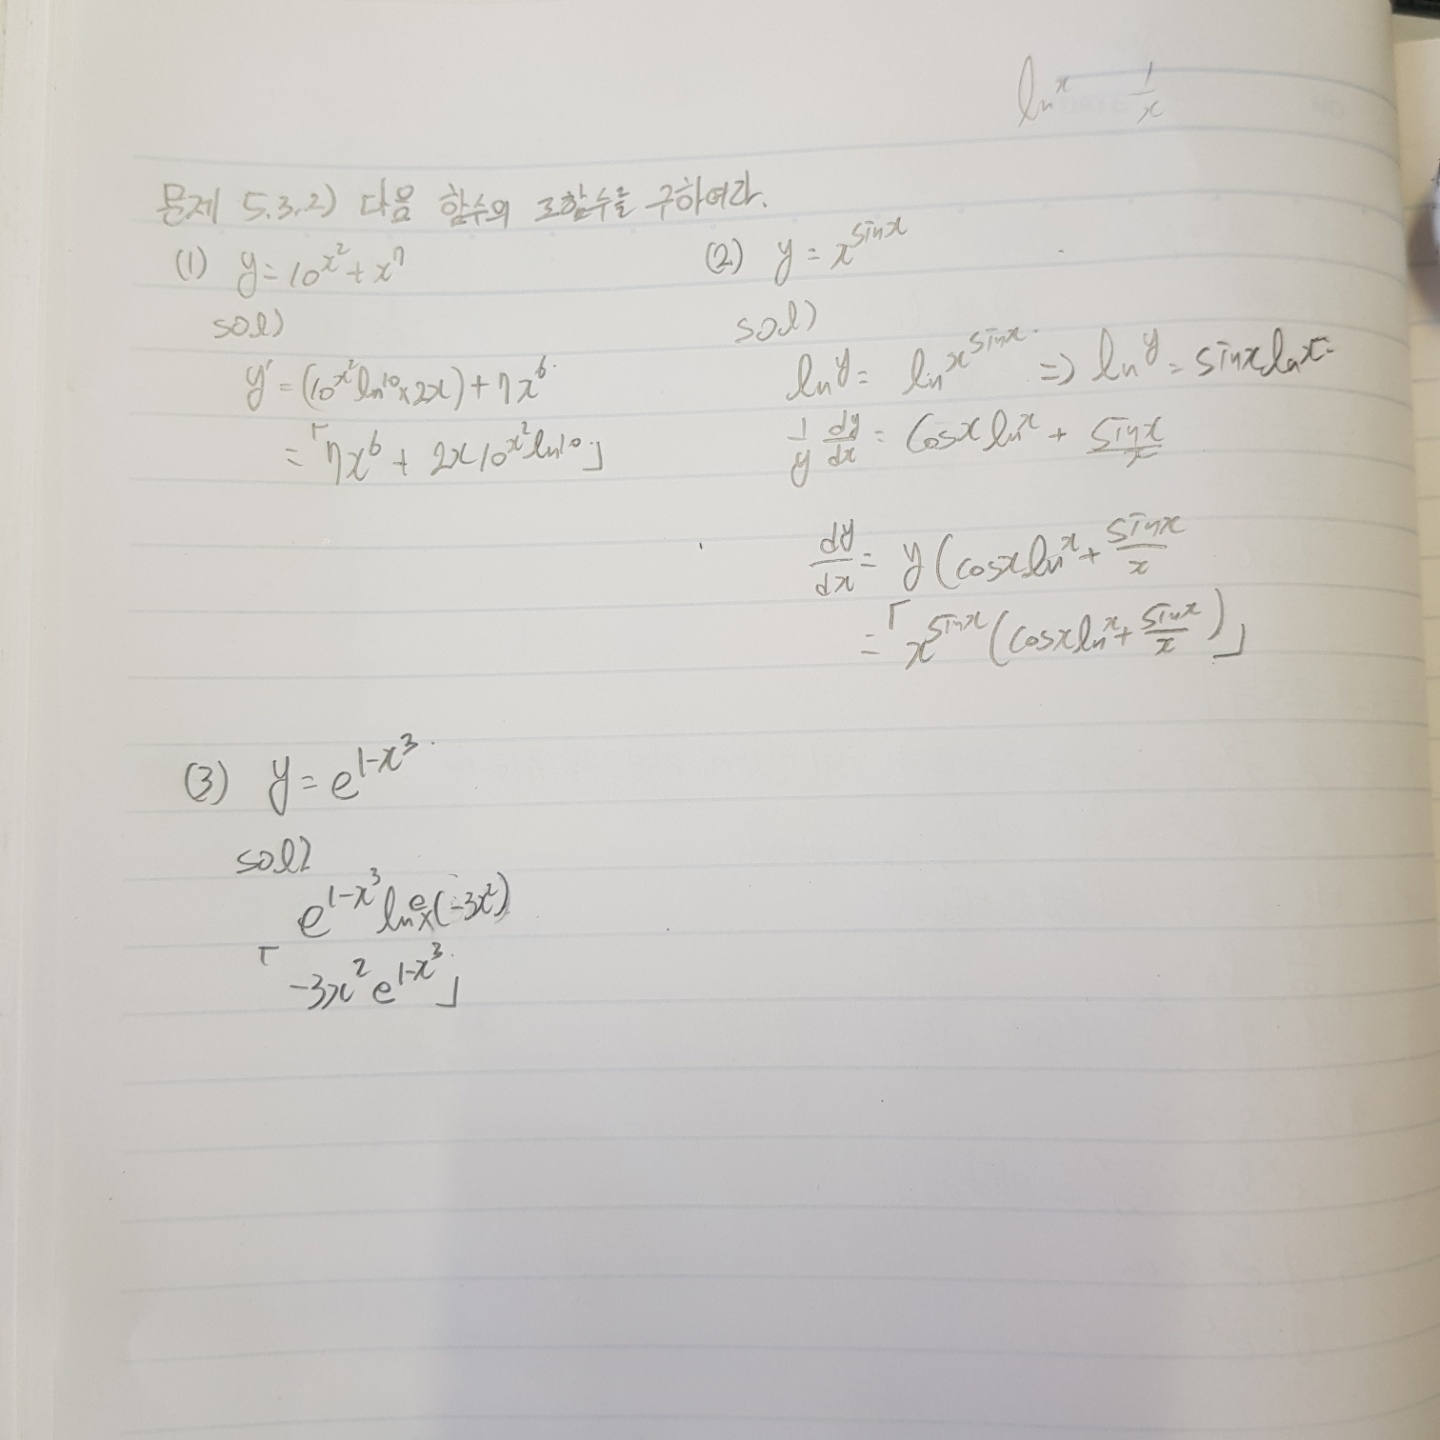 ln x 1/x
문제 5.3.2) 다음 함수의 도함수를 구하여라.
(1) y = 10^{x^2} + x^7
sol)
y' = (10^{x^2} ln 10 × 2x) + 7x^6
= 「7x^6 + 2x10^{x^2} ln 10」
(2) y = x^{sinx}
sol)
ln y = ln x^{sinx} ⇒ ln y = sinx ln x
1/y dy/dx = cosx ln x + sinx/x
dy/dx = y (cosx ln x + sinx/x
= 「x^{sinx} (cosx ln x + sinx/x)」
(3) y = e^{1-x^3}
sol)
e^{1-x^3} ln e × (-3x^2)
「-3x^2 e^{1-x^3}」